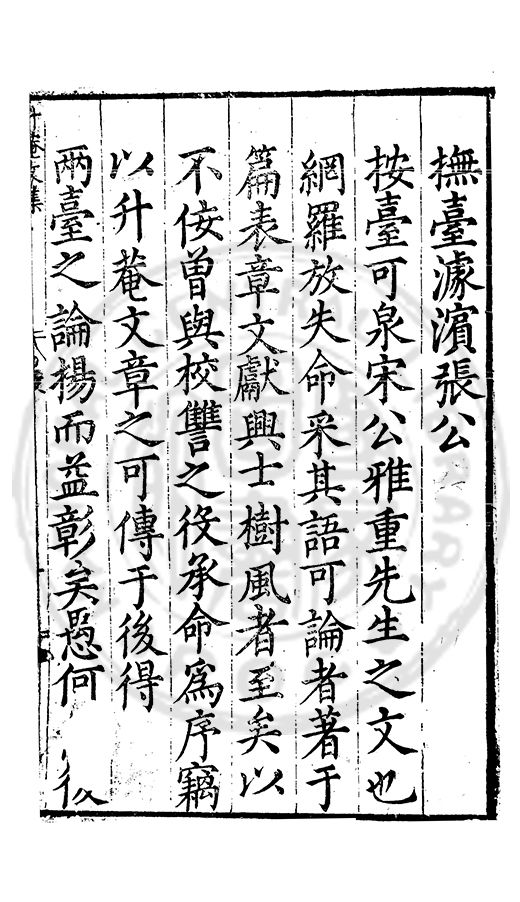 撫臺濠濱張公
按臺可泉宋公雅重先生之文也
網羅放失命采其語可論者著于
篇表章文獻興士樹風者至矣以
不佞曽與校讐之役承命為序竊
以升菴文章之可傳于後得
兩臺之論揚而益彰矣愚何